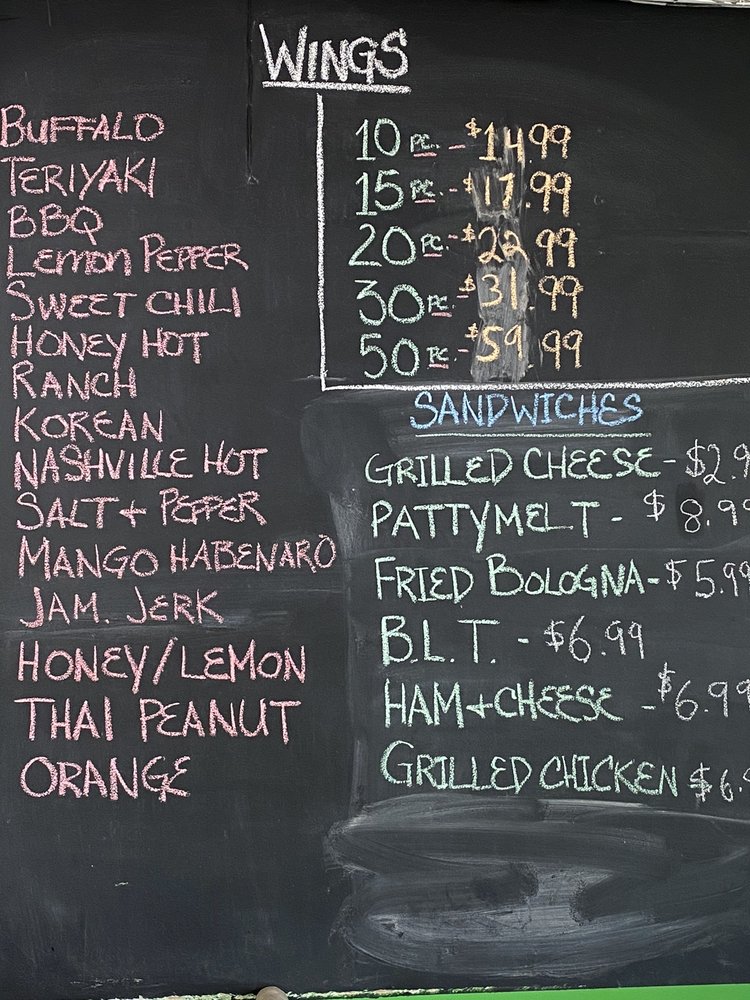 WINGS
BUFFALO
TERIYAKI
BBQ
LEMON PEPPER
SWEET CHILI
HONEY HOT
RANCH
KOREAN
NASHVILLE HOT
SALT + PEPPER
MANGO HABENARO
JAM. JERK
HONEY/LEMON
THAI PEANUT
ORANGE
10 PC. - $14.99
15 PC. - $17.99
20 PC. - $22.99
30 PC. - $31.99
50 PC. - $59.99
SANDWICHES
GRILLED CHEESE - $2.9
PATTYMELT - $8.99
FRIED BOLOGNA - $5.99
B.L.T. - $6.99
HAM + CHEESE - $6.99
GRILLED CHICKEN $6.